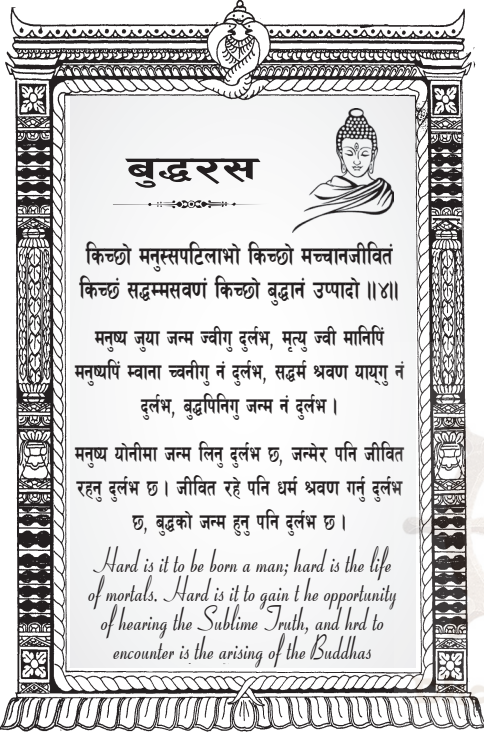 बुद्धरस
किच्छो मनुस्सपटिलाभो किच्छो मच्चानजीवितं
किच्छं सद्धम्मसवणं किच्छो बुद्धानं उप्पादो ॥४॥
मनुष्य जुया जन्म ज्वीगु दुर्लभ, मृत्यु ज्वी मानिपिं
मनुष्यपिं म्वाना च्वनीगु नं दुर्लभ, सद्धर्म श्रवण याय्‌गु नं
दुर्लभ, बुद्धपिनिगु जन्म नं दुर्लभ ।
मनुष्य योनीमा जन्म लिनु दुर्लभ छ, जन्मेर पनि जीवित
रहनु दुर्लभ छ । जीवित रहे पनि धर्म श्रवण गर्नु दुर्लभ
छ, बुद्धको जन्म हुनु पनि दुर्लभ छ ।
Hard is it to be born a man; hard is the life
of mortals. Hard is it to gain t he opportunity
of hearing the Sublime Truth, and hrd to
encounter is the arising of the Buddhas